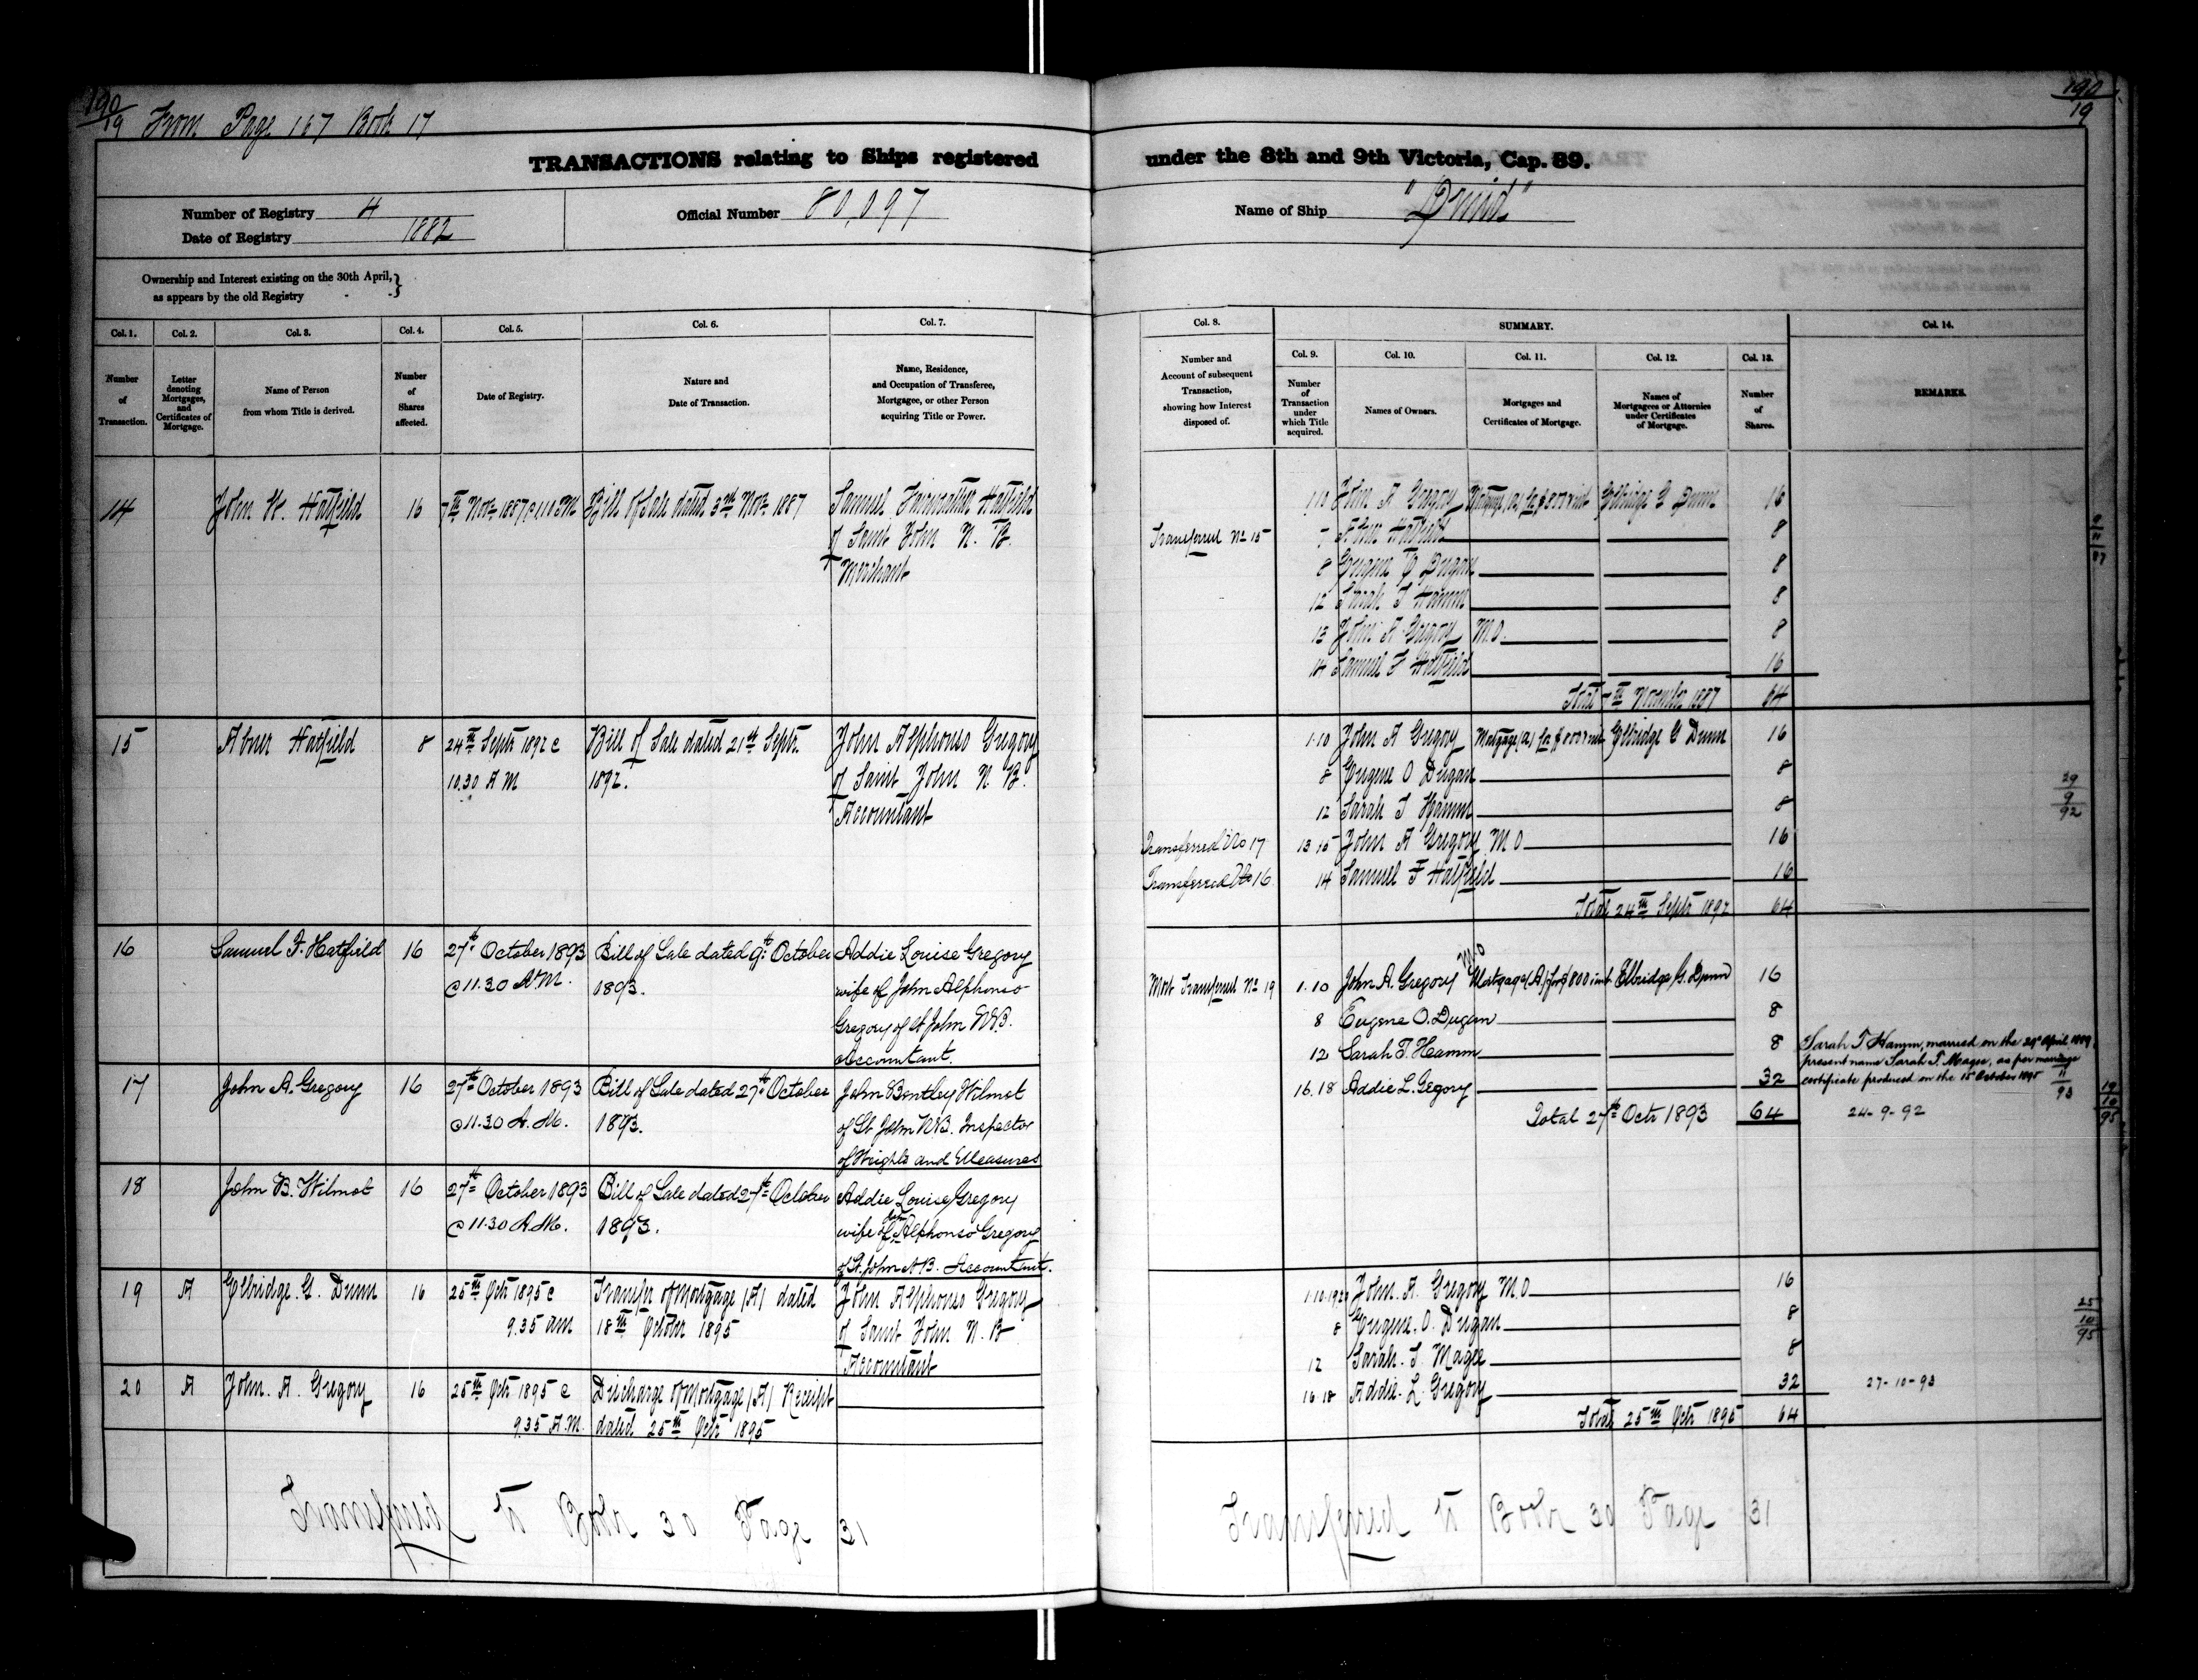 190
19 From Page 167 Book 17
TRANSACTIONS relating to Ships registered
Number of Registry 4
Date of Registry 1882
Official Number 80,097
Ownership and Interest existing on the 30th April,}
as appears by the old Registry
Col. 1. Col. 2. Col. 3. Col. 4. Col. 5. Col. 6. Col. 7.
Number of Transaction.
Letter denoting Mortgages, and Certificates of Mortgage.
Name of Person from whom Title is derived.
Number of Shares affected.
Date of Registry.
Nature and Date of Transaction.
Name, Residence, and Occupation of Transferee, Mortgagee, or other Person acquiring Title or Power.
14 John W. Hatfield 16 7th Novr 1887 @ 11 AM Bill of Sale dated 3rd Novr 1887 Samuel Fairweather Hatfield
of Saint John N. B.
Merchant
15 Abner Hatfield 8 24th Septr 1892 @ Bill of Sale dated 21st Septr John Alphonso Gregory
10.30 AM 1892. of Saint John N. B.
Accountant
16 Samuel F. Hatfield 16 27th October 1893 Bill of Sale dated 9th October Addie Louise Gregory
@ 11.30 A.M. 1893. wife of John Alphonso
Gregory of St John N.B.
Accountant.
17 John A. Gregory 16 27th October 1893 Bill of Sale dated 27th October John Bentley Wilmot
@ 11.30 A.M. 1893. of St. John N.B. Inspector
of Weights and Measures
18 John B. Wilmot 16 27th October 1893 Bill of Sale dated 27th October Addie Louise Gregory
@ 11.30 A.M. 1893. wife of John Alphonso Gregory
of St. John N.B. Accountant.
19 A Elbridge. G. Dunn 16 25th Octr 1895 @ Transfer of Mortgage (A) dated John Alphonso Gregory
9.35 am 18th October 1895 of Saint John N. B
Accountant
20 A John. A. Gregory 16 25th Octr 1895 @ Discharge of Mortgage (A) Receipt
9.35 A.M. dated 25th Octr 1895
Transferred to Book 30 Page 31
190
19
under the 8th and 9th Victoria, Cap. 89.
Name of Ship "Druid"
Col. 8. SUMMARY. Col. 14.
Col. 9. Col. 10. Col. 11. Col. 12. Col. 13.
Number and Account of subsequent Transaction, showing how Interest disposed of.
Number of Transaction under which Title acquired.
Names of Owners.
Mortgages and Certificates of Mortgage.
Names of Mortgagees or Attornies under Certificates of Mortgage.
Number of Shares.
REMARKS.
1.10 John A Gregory Mortgage (A) for $800 & int Elbridge G Dunn 16
Transferred No 15 7 Abner Hatfield 8
8 Eugene O Dugan 8
12 Sarah T Hamm 8
13 John A Gregory M.O. 8
14 Samuel F Hatfield 16
Total 7th November 1887 64
1.10 John A Gregory Mortgage (A) for $800 & int Elbridge G Dunn 16
8 Eugene O Dugan 8
12 Sarah T Hamm 8
29
9
92
Transferred No 17 13 15 John A Gregory M O 16
Transferred No 16 14 Samuel F Hatfield 16
Total 24th Septr 1892 64
Mort Transferred No 19 1.10 John A. Gregory M.O Mortgage (A) for $800 int Elbridge G. Dunn 16
8 Eugene O. Dugan 8
12 Sarah T. Hamm 8
16.18 Addie L. Gegory 32
Total 27th Octr 1893 64
Sarah T Hamm, married on the 29th April 1889
present name Sarah T. Magee, as per marriage
certificate produced on the 15 October 1895
11
93
24-9-92
19
10
95
1.10.19.20 John. A. Gregory M.O 16
8 Eugene. O. Dugan 8
25
10
95
12 Sarah. T. Magee 8
16 18 Addie. L. Gregory 32
27-10-93
Total 25th Octr 1895 64
Transferred to Book 30 Page 31